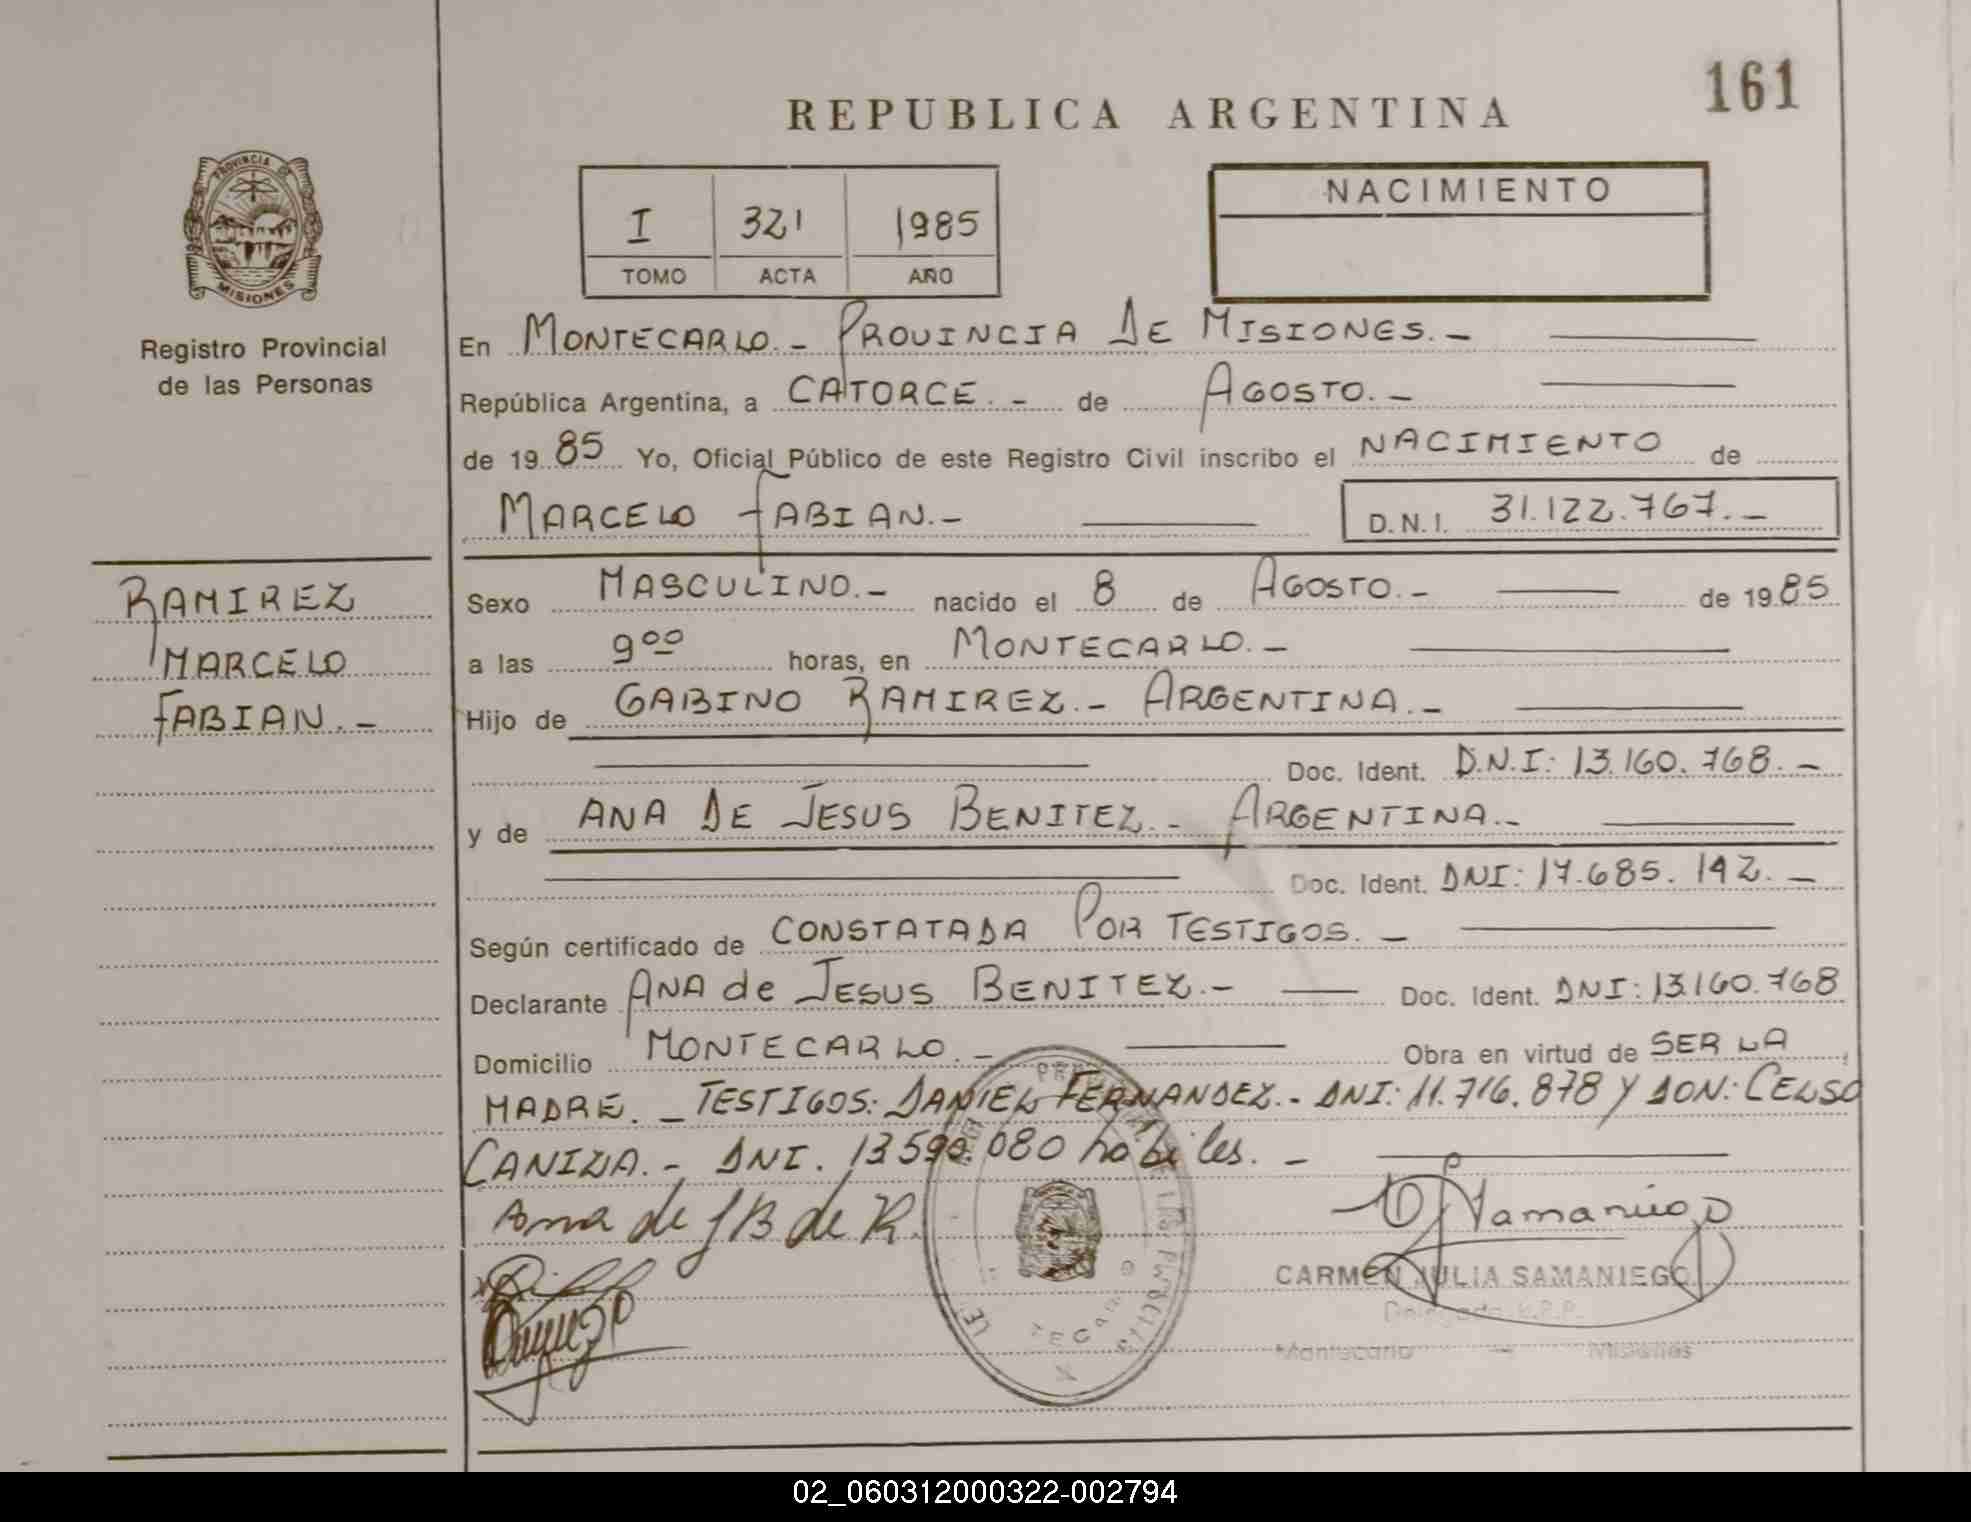 161
REPUBLICA ARGENTINA
PROVINCIA DE
MISIONES
Registro Provincial
de las Personas
I 321 1985
TOMO ACTA AÑO
NACIMIENTO
En MONTECARLO.- PROVINCIA DE MISIONES.-
República Argentina, a CATORCE.- de AGOSTO.-
de 1985 Yo, Oficial Público de este Registro Civil inscribo el NACIMIENTO de
MARCELO FABIAN.- D.N.I. 31.122.767.-
RAMIREZ
MARCELO
FABIAN.-
Sexo MASCULINO.- nacido el 8 de AGOSTO.- de 1985
a las 9 00 horas, en MONTECARLO.-
Hijo de GABINO RAMIREZ.- ARGENTINA.-
Doc. Ident. D.N.I: 13.160.768.-
y de ANA DE JESUS BENITEZ.- ARGENTINA.-
Doc. Ident. DNI: 17.685.142.-
Según certificado de CONSTATADA POR TESTIGOS.-
Declarante ANA de JESUS BENITEZ.- Doc. Ident. DNI: 13.160.768
Domicilio MONTECARLO.- Obra en virtud de SER LA
MADRE.- TESTIGOS: DANIEL FERNANDEZ.- DNI: 11.716.878 Y DON: CELSO
CANIZA.- DNI. 13.590.080 hábiles.-
Ana de J B de R.
Samaniego
CARMEN JULIA SAMANIEGO
Delegada R.P.P.
Montecarlo - Misiones
02_060312000322-002794